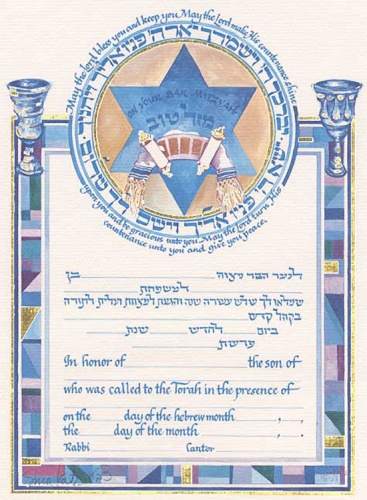 May the Lord bless you and keep you. May the Lord make His countenance shine
upon you and be gracious unto you. May the Lord turn His
countenance unto you and give you peace.
וישמרך יאר פניו אליך ויחנך ישא פניו אליך וישם לך שלום
ON YOUR BAR MITZVAH
מזל טוב
לנער הבר מצוה בן
למשפחת
שמלאו לך שלש עשרה שנה והגעת למצוות ועלית לתורה
בקהל קדש
ביום לחדש שנת
פרשת
In honor of the son of
who was called to the Torah in the presence of
on the day of the hebrew month , .
the day of the month , .
Rabbi Cantor